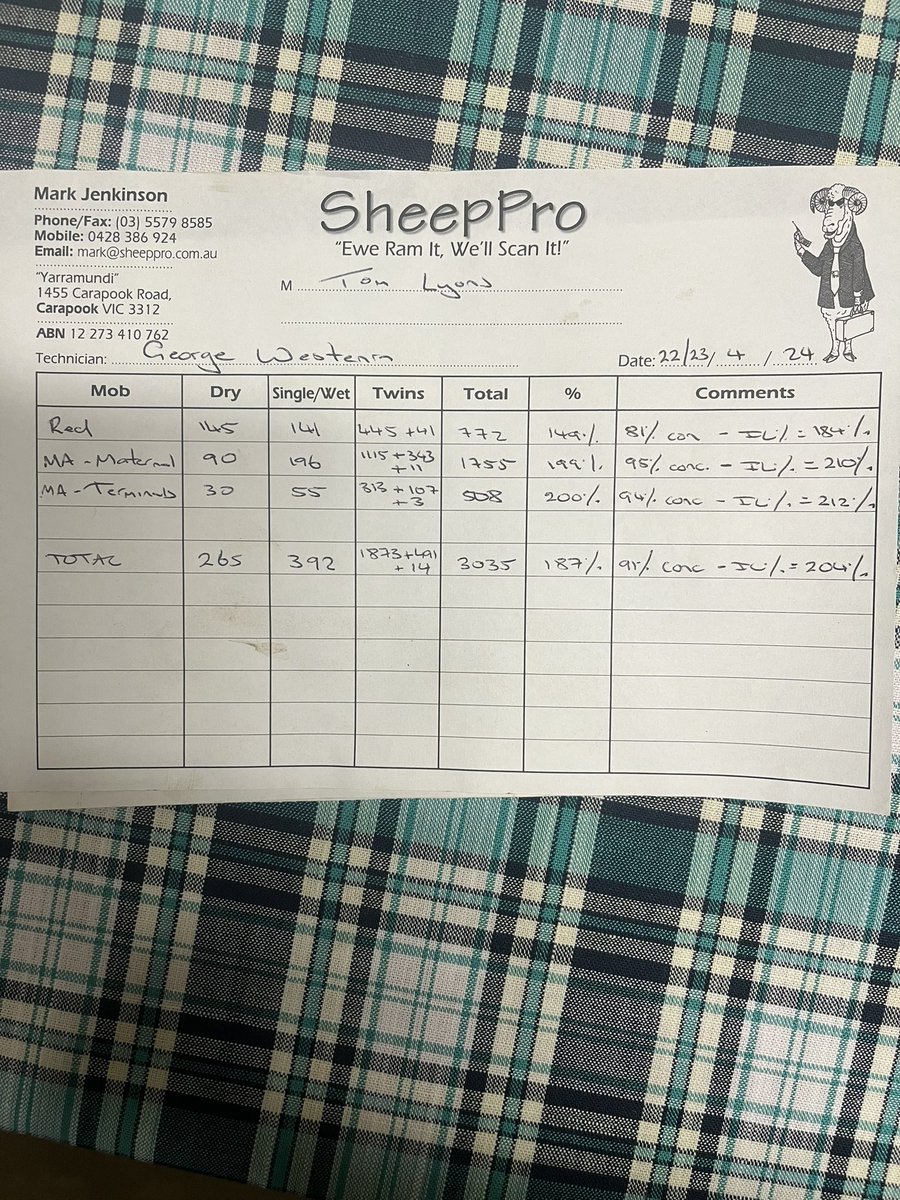 Mark Jenkinson
Phone/Fax: (03) 5579 8585
Mobile: 0428 386 924
Email: mark@sheeppro.com.au
"Yarramundi"
1455 Carapook Road,
Carapook VIC 3312
ABN 12 273 410 762
SheepPro
"Ewe Ram It, We'll Scan It!"
M Tom Lyons
Technician: George Westenra
Date: 22/23/ 4 / 24
Mob Dry Single/Wet Twins Total % Comments
Red 145 141 445 +41 772 149% 81% con - IL% = 184%
MA-Maternal 90 196 1115 + 343 + 11 1755 199% 95% conc. - IL% = 210%
MA-Terminals 30 55 313 + 107 + 3 508 200% 94% conc - IL% = 212%
TOTAL 265 392 1873+491 + 14 3035 187% 91% conc - IL% = 204%